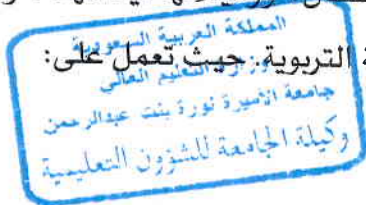 التربوية. حيث تعمل على:
المملكة العربية السعودية
وزارة التعليم العالي
جامعة الأميرة نورة بنت عبدالرحمن
وكيلة الجامعة للشؤون التعليمية